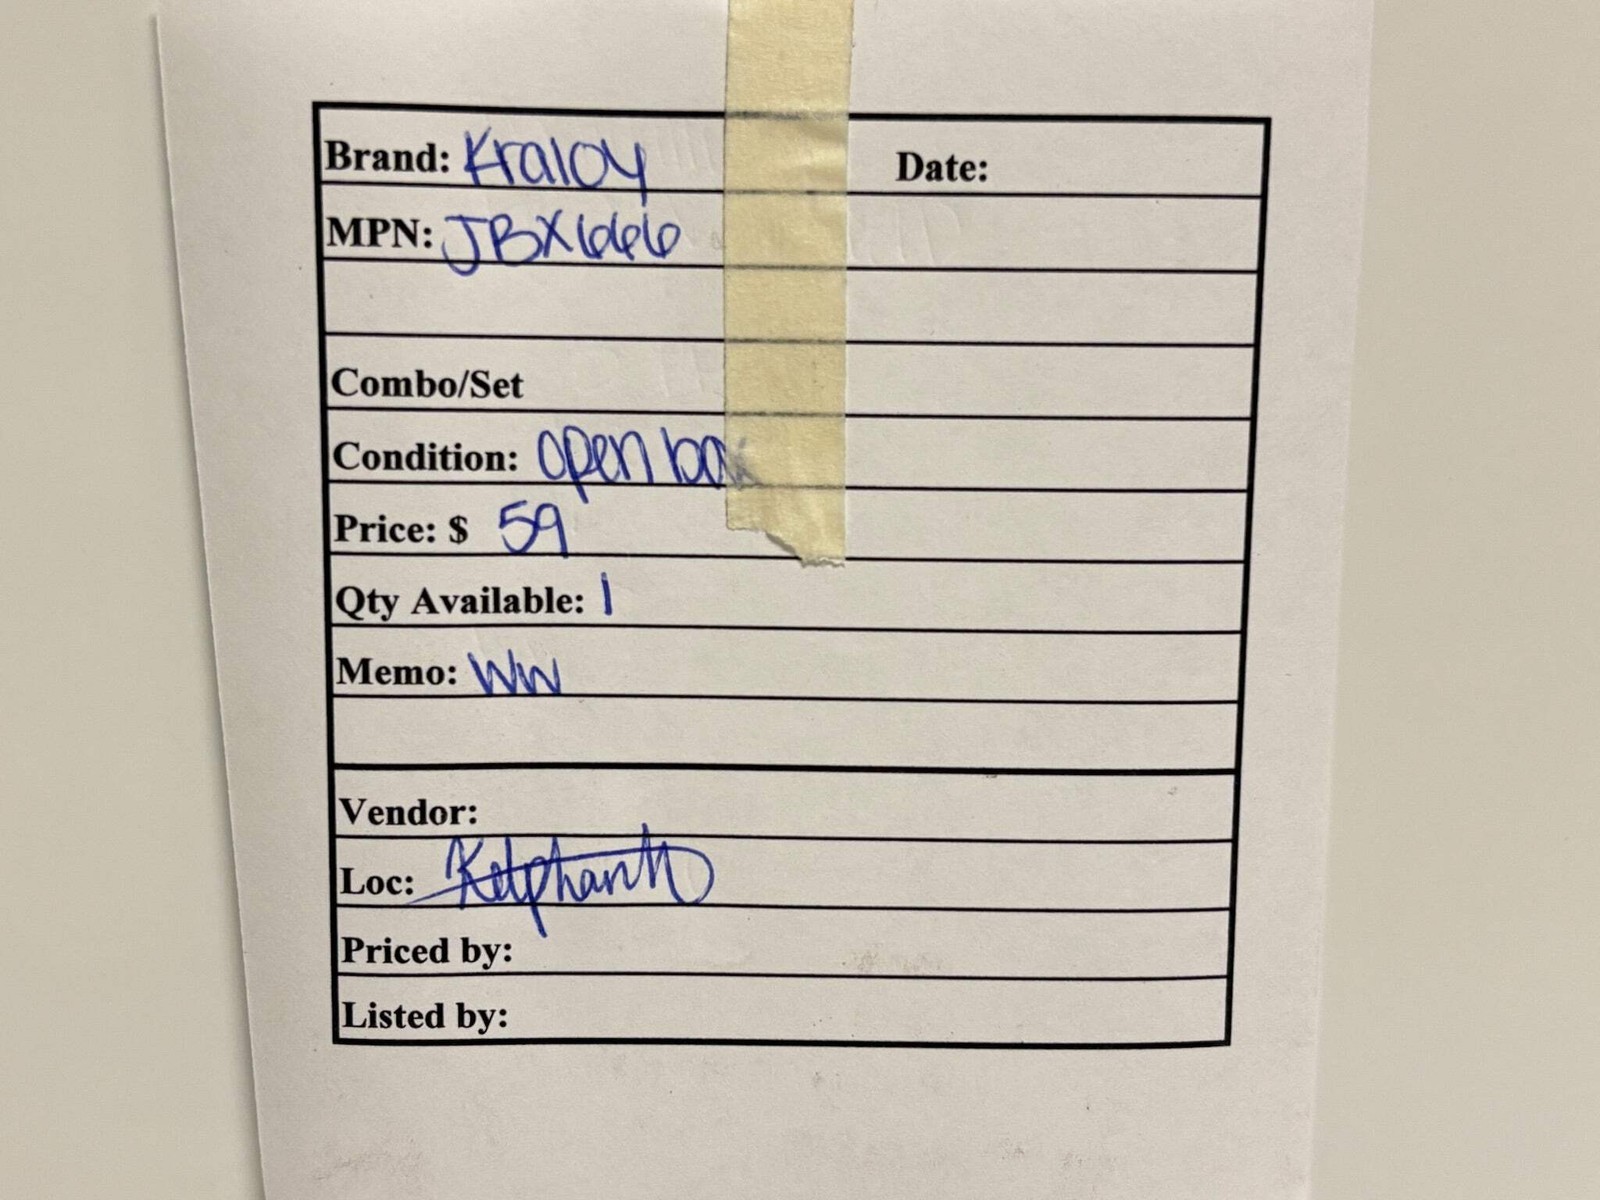 Brand: Kraloy Date:
MPN: JBX666
Combo/Set
Condition: open box
Price: $ 59
Qty Available: 1
Memo: WW
Vendor:
Loc:
Priced by:
Listed by: